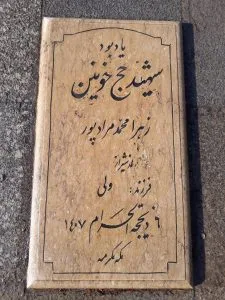 یادبود
شهید حج خونین
زهرا محمدمرادپور
فرزند: ولی
۶ ذیحجه الحرام ۱۴۰۷
مکه مکرمه